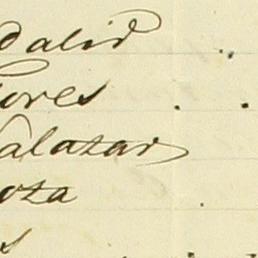 dalid
lores
Salazar
oza
s